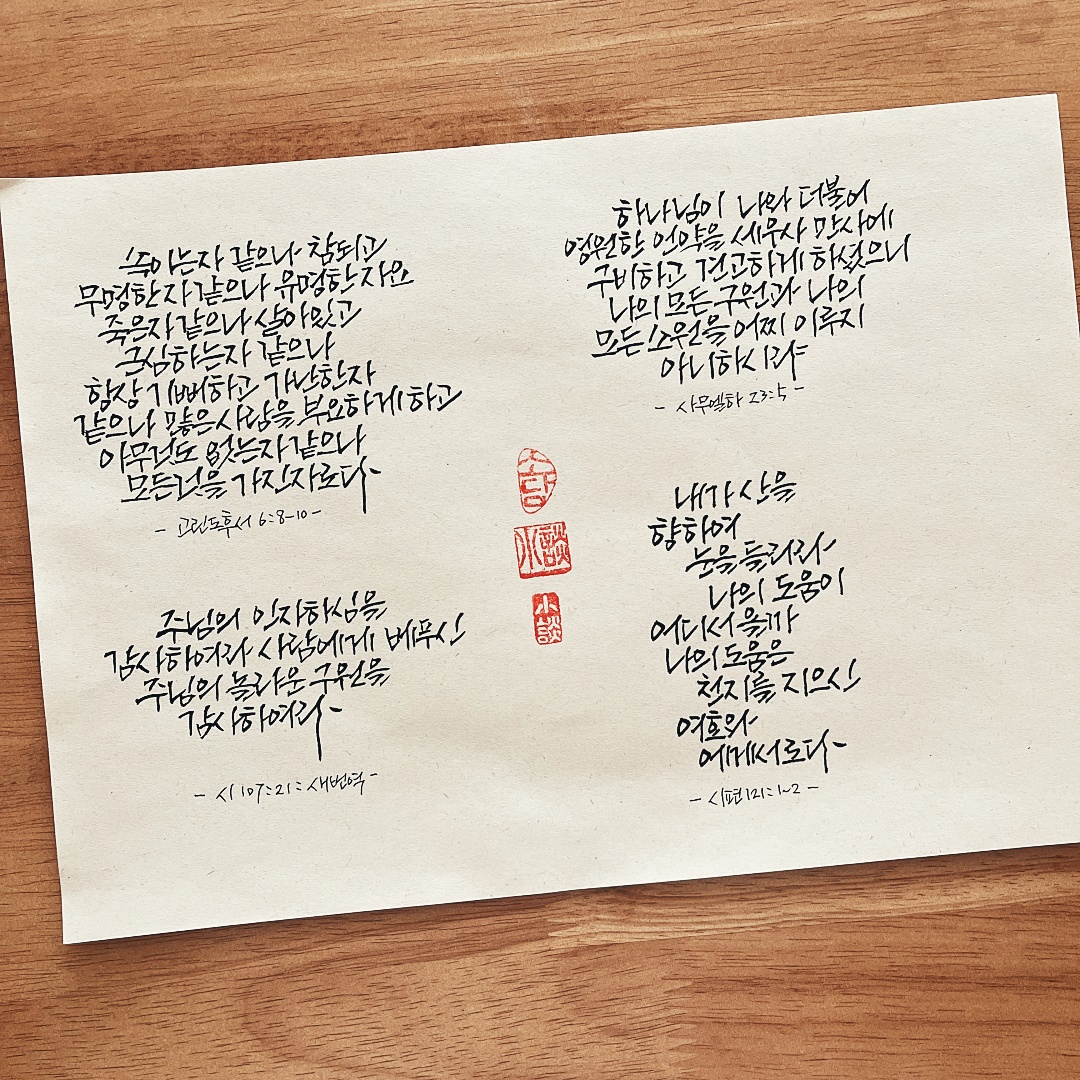 속이는자 같으나 참되고
무명한자 같으나 유명한 자요
죽은자 같으나 살아있고
근심하는자 같으나
항상 기뻐하고 가난한자
같으나 많은사람을 부요하게 하고
아무것도 없는자 같으나
모든것을 가진자로다
- 고린도후서 6:8-10 -
주님의 인자하심을
감사하여라 사람에게 베푸신
주님의 놀라운 구원을
감사하여라
- 시 107:21: 새번역 -
소담
小談
小談
하나님이 나와 더불어
영원한 언약을 세우사 만사에
구비하고 견고하게 하셨으니
나의 모든 구원과 나의
모든 소원을 어찌 이루지
아니하시랴
- 사무엘하 23:5 -
내가 산을
향하여
눈을 들리라
나의 도움이
어디서 올까
나의 도움은
천지를 지으신
여호와
에게서로다
- 시편 121:1~2 -